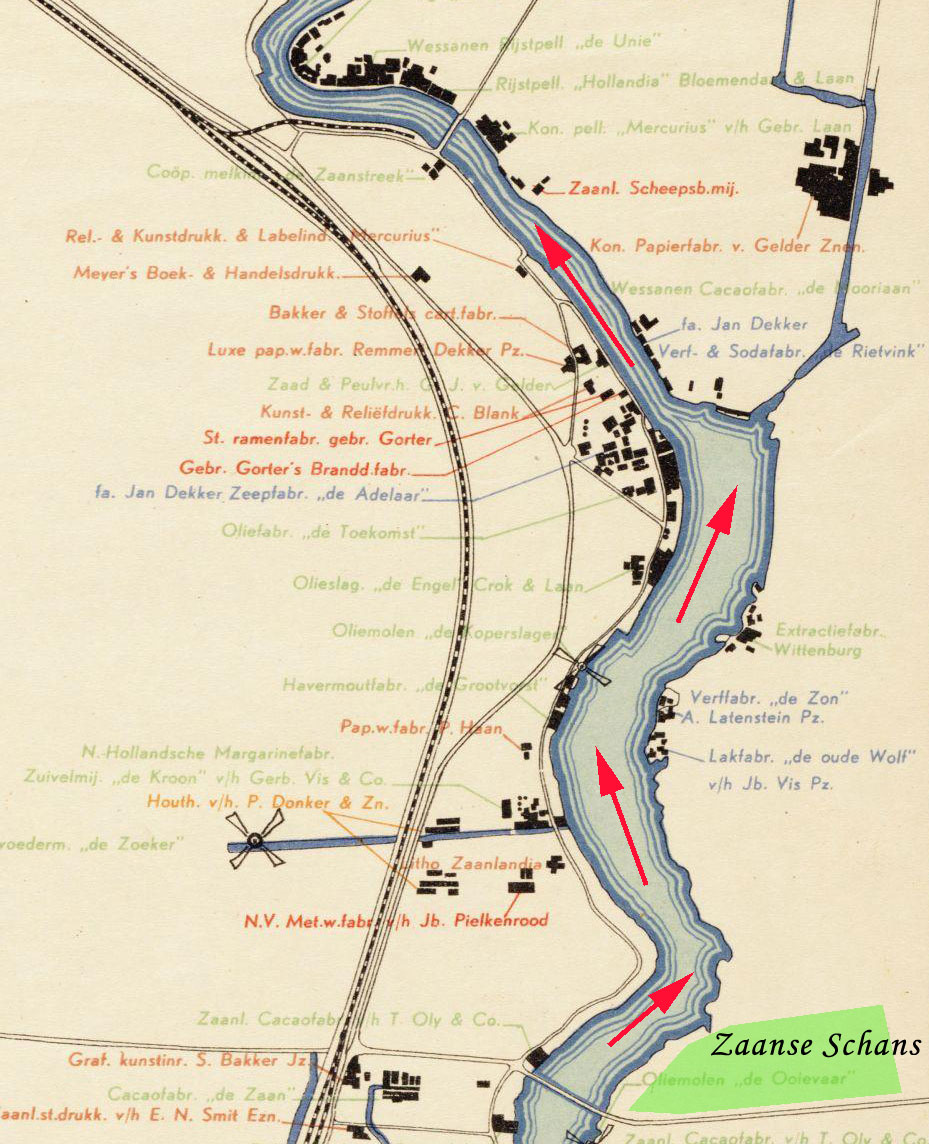 Wessanen Rijstpell „de Unie"
Rijstpell. „Hollandia" Bloemendaal & Laan
Kon. pell. „Mercurius" v/h Gebr. Laan
Coöp. melkinr. „de Zaanstreek"
Zaanl. Scheepsb.mij.
Rel.- & Kunstdrukk. & Labelind. „Mercurius"
Kon. Papierfabr. v. Gelder Znen.
Meyer's Boek- & Handelsdrukk.
Wessanen Cacaofabr. „de Mooriaan"
Bakker & Stoffels cart.fabr.
fa. Jan Dekker
Verf- & Sodafabr. „de Rietvink"
Luxe pap.w.fabr. Remmert Dekker Pz.
Zaad & Peulvr.h. G. J. v. Gelder
Kunst- & Reliëfdrukk. C. Blank
St. ramenfabr. gebr. Gorter
Gebr. Gorter's Brandd.fabr.
fa. Jan Dekker Zeepfabr. „de Adelaar"
Oliefabr. „de Toekomst"
Olieslag. „de Engel" Crok & Laan
Oliemolen „de Koperslager"
Extractiefabr.
Wittenburg
Havermoutfabr. „de Grootvorst"
Verffabr. „de Zon"
A. Latenstein Pz.
Pap.w.fabr. P. Haan
N.-Hollandsche Margarinefabr.
Zuivelmij. „de Kroon" v/h Gerb. Vis & Co.
Lakfabr. „de oude Wolf"
v/h Jb. Vis Pz.
Houth. v/h. P. Donker & Zn.
voederm. „de Zoeker"
Litho Zaanlandia
N.V. Met.w.fabr. v/h Jb. Pielkenrood
Zaanl. Cacaofabr. v/h T. Oly & Co.
Zaanse Schans
Graf. kunstinr. S. Bakker Jz.
Oliemolen „de Ooievaar"
Cacaofabr. „de Zaan"
Zaanl.st.drukk. v/h E. N. Smit Ezn.
Zaanl. Cacaofabr. v/h T. Oly & Co.